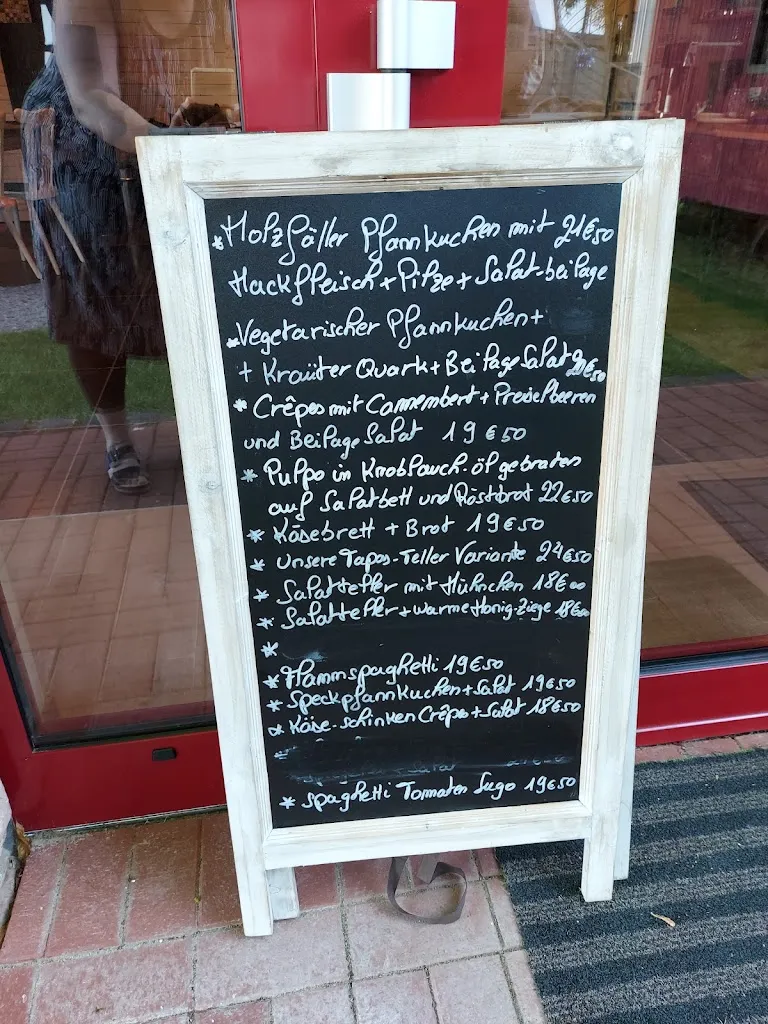 *Holzfäller Pfannkuchen mit 21€50
Hackfleisch+Pilze+Salat-beilage
*Vegetarischer Pfannkuchen+
+ Kraüter Quark+BeilageSalat 20€50
* Crêpes mit Camembert+Preiselbeeren
und BeilageSalat 19€50
* Pulpo in Knoblauch-öl gebraten
auf Salatbett und Röstbrot 22€50
* Käsebrett + Brot 19€50
* Unsere Tapas-Teller Variante 24€50
* Salatteller mit Hühnchen 18€00
* Salatteller+warme Honig-Ziege 18€00
*
*Flammspaghetti 19€50
* Speckpfannkuchen+Salat 19€50
* Käse-schinken Crêpes+Salat 18€50
* spaghetti Tomaten Sugo 19€50